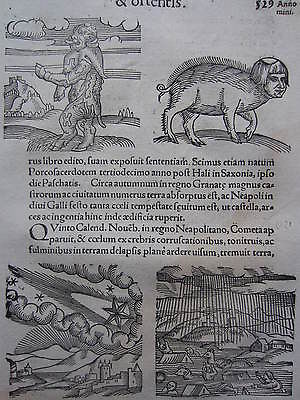 & ostentis.
529 Anno
mini.
rus libro edito, suam exposuit sententiam. Scimus etiam natum
Porcosacerdotem tertiodecimo anno post Hali in Saxonia, ipso
die Paschatis. Circa autumnum in regno Granatę magnus ca-
strorum ac ciuitatum numerus terra absorptus est, ac Neapoli in
diui Galli festo tanta cœli tempestas secuta est, ut castella, ar-
ces ac ingentia hinc inde ædificia ruperit.
QVinto Calend. Nouẽb. in regno Neapolitano, Cometa ap
paruit, & cœlum ex crebris corruscationibus, tonitruis, ac
fulminibus in terram delapsis planè ardere uisum, tremuit terra,